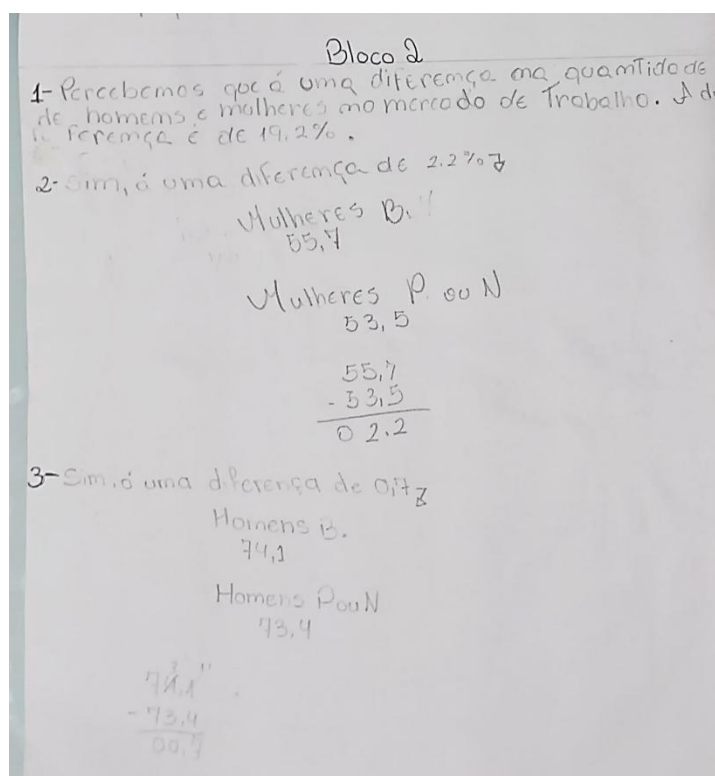 Bloco 2
1- Percebemos que á uma diferença na quantidade
de homens e mulheres no mercado de Trabalho. A di
ferença é de 19,2%.
2- Sim, á uma diferença de 2.2%
Mulheres B.
55,7
Mulheres P. ou N
53,5
55,7
- 53,5
02.2
3- Sim, á uma diferença de 0,7
Homens B.
74,1
Homens P ou N
73,4
74,1
-73,4
00,7